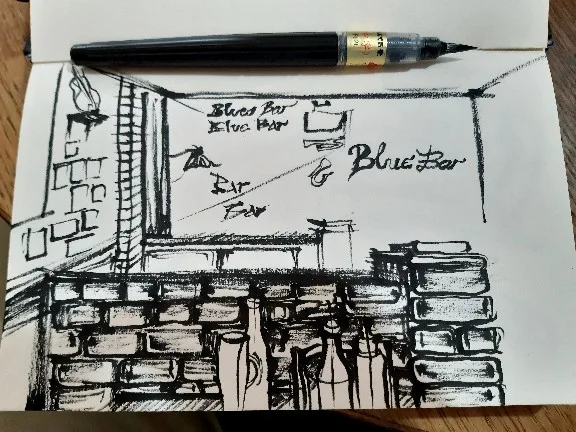 Blues Bar
Blue Bar
Blue Bar
Bar
Bar